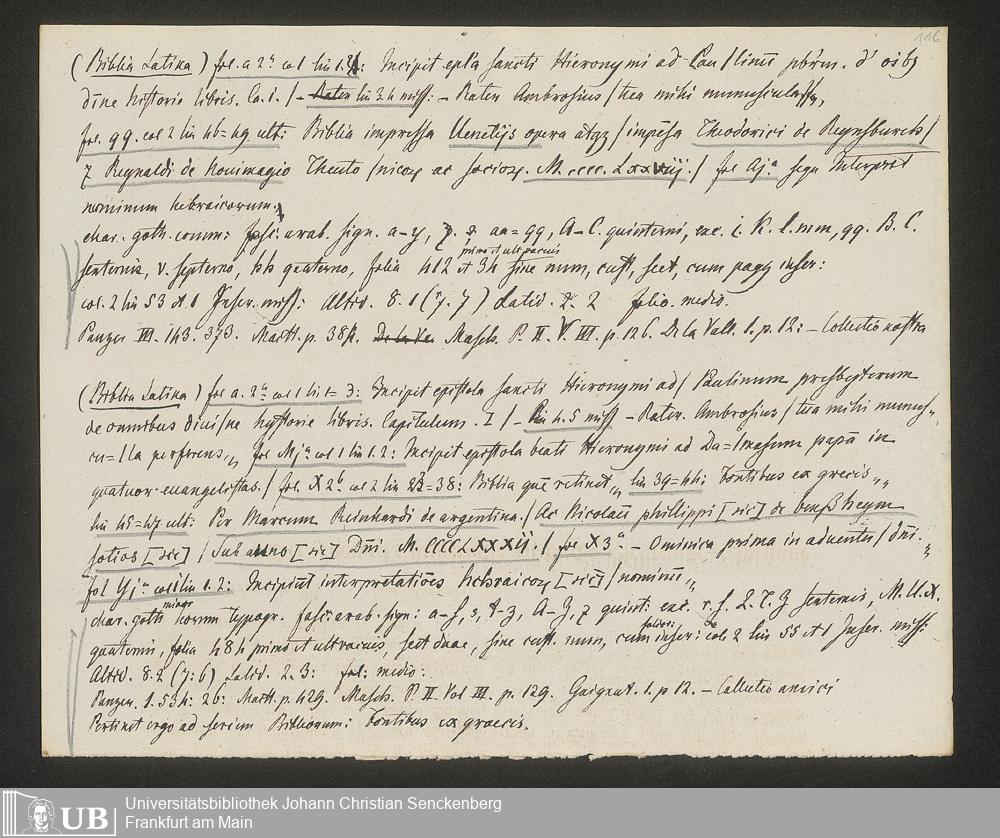 116
(Biblia Latina) fol. a 2a col 1 lin 1.2: Incipit epl'a sancti Hieronymi ad Pau / linu pbrm. d' oibz
dine historie libris. Ca. i. / - lin 3.4 miss: - Rater Ambrosius / tua mihi munuscula,
fol. qq. col 2 lin 46=49 ult: Biblia impressa Venetijs opera atqz / impesa Theodorici de Reynsburch /
z Reynaldi de Novimagio Theuto / nicoz ac socioz. M. cccc. Lxxviij. / fol Aj.a sequ Interpret
nominum hebraicorum.
char. goth. comm: sign. a-y, aa=qq, A-C. quinterni, exc. i. k. l. mm, qq. B. C.
senternis, v. septerno, hh quaterno, folia 412 et 34 primo et ult vacuis sine num, cust, sect, cum pagg inscr:
col. 2 lin 53 et 1 Inscr. miss: Altid. 8. 1 (7. 7) Latid. 2. 2 folio. medio.
Panzer III. 143. 373. Maitt. p. 384. Masch. P. II. V. III. p. 126. De la Vall. 1. p. 12: - Collectio nostra
(Biblia Latina) fol a. 2a col 1 lin 1= 3: Incipit epistola sancti Hieronymi ad / Paulinum presbyterum
de omnibus divi/ne hystorie libris. Capitulum. I / - lin 4. 5 miss - Rater. Ambrosius / tua mihi munus-
cu=lla perferens,, fol Mja col 1 lin 1. 2: Incipit epistola beati Hieronymi ad Da=/masum papa in
quatuor euangelistas. / fol. X 2b col 2 lin =38: Biblia que retinet,, lin 39=44: Fontibus ex grecis,,
lin 45=47 ult. Per Marcum Reinhardi de argentina. / Ac Nicolau phillippi [sic] de benßheym
sotios [sic] / Sub anno [sic] Dni. M. CCCCLXXXij. / fol X3a. - Ominica prima in adventu / dni.
fol Yj.a col 1 lin 1. 2: Incipiut interpretatioes hebraicoz [sic] / nominu,,
char. goth minor comm typogr. sign: a-z, A-Z, quint: exc. senternis, M. U. X.
quaternis, folia 484 primo et ult vacuis, sect duae, sine cust. num, cum inscr: col. 2 lin 55 et 1 Inscr. miss:
Altid. 8. 2 (7: 6) Latid. 2. 3: fol: medio:
Panzer. 1. 534: 26: Maitt. p. 429. Masch. P II. Vol III. p. 129. Gaignat. 1. p 12. - Collectio amici
Pertinet ergo ad seriem Bibliorum: Fontibus ex graecis.
UB
Universitätsbibliothek Johann Christian Senckenberg
Frankfurt am Main